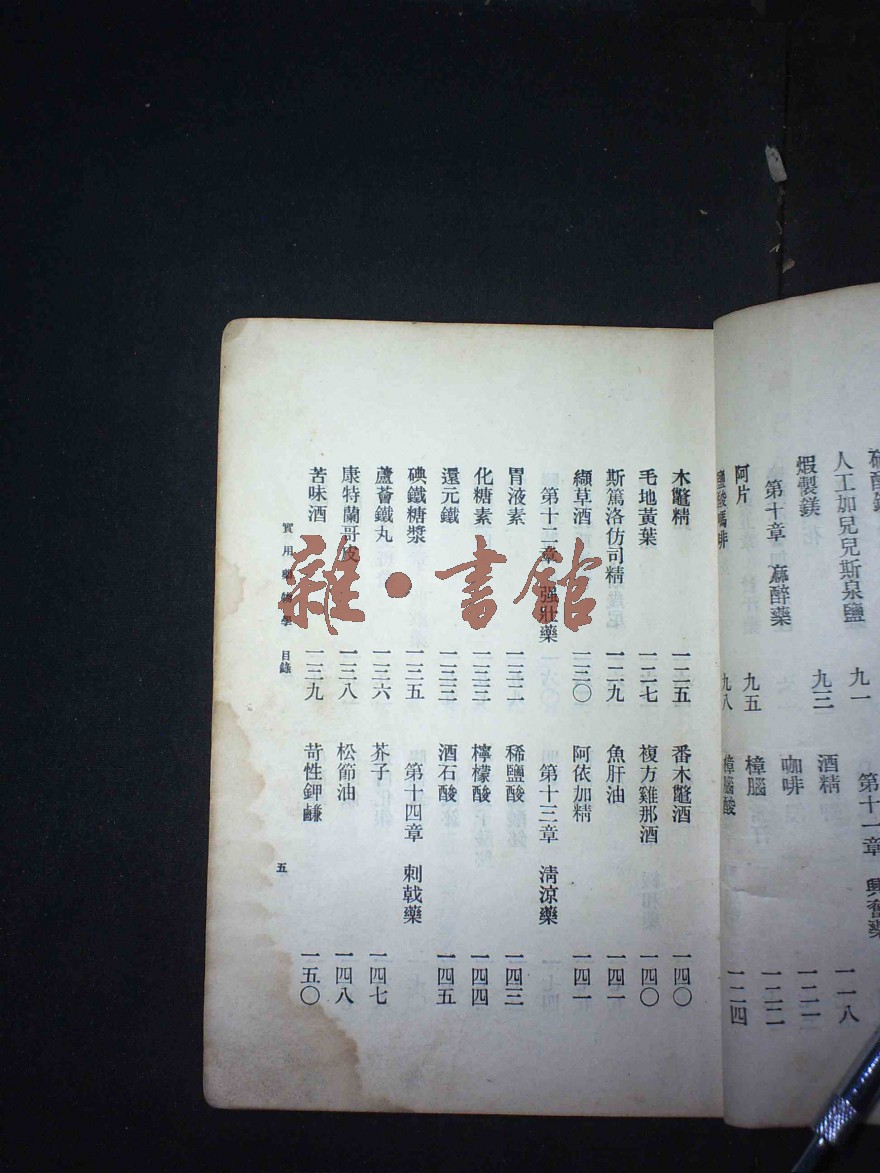 人工加兒兒斯泉鹽 九一
煆製鎂 九三
第十章 麻醉藥
阿片 九五
鹽酸嗎啡 九八
第十一章 興奮藥
酒精 一一八
咖啡 一二一
樟腦 一二二
樟腦酸 一二四
木鼈精 一二五
毛地黃葉 一二七
斯篤洛仿司精 一二九
纈草酒 一三〇
第十二章 强壯藥
胃液素 一三二
化糖素 一三三
還元鐵 一三三
碘鐵糖漿 一三五
蘆薈鐵丸 一三六
康特蘭哥皮 一三八
苦味酒 一三九
番木鼈酒 一四〇
複方雞那酒 一四〇
魚肝油 一四一
阿依加精 一四一
第十三章 清涼藥
稀鹽酸 一四三
檸檬酸 一四四
酒石酸 一四五
第十四章 刺戟藥
芥子 一四七
松節油 一四八
苛性鉀鹼 一五〇
實用藥物學 目錄 五
雜·書館